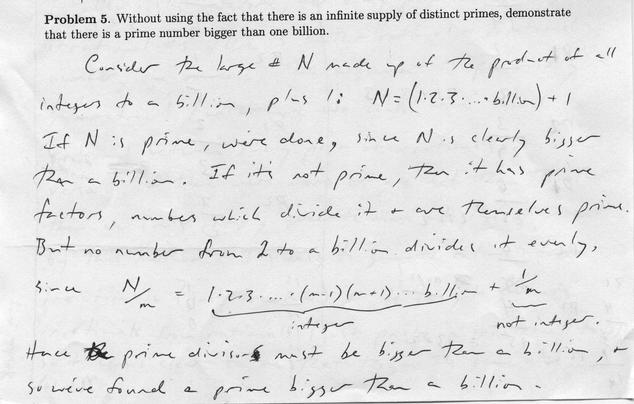 Problem 5. Without using the fact that there is an infinite supply of distinct primes, demonstrate
that there is a prime number bigger than one billion.
Consider the large # N made up of the product of all
integers to a billion, plus 1: N = (1·2·3·...·billion) + 1
If N is prime, we're done, since N is clearly bigger
than a billion. If it's not prime, then it has prime
factors, numbers which divide it + are themselves prime.
But no number from 2 to a billion divides it evenly,
since N/m = 1·2·3·...·(m-1)(m+1)...billion + 1/m
integer not integer.
Hence prime divisors must be bigger than a billion, +
so we've found a prime bigger than a billion.